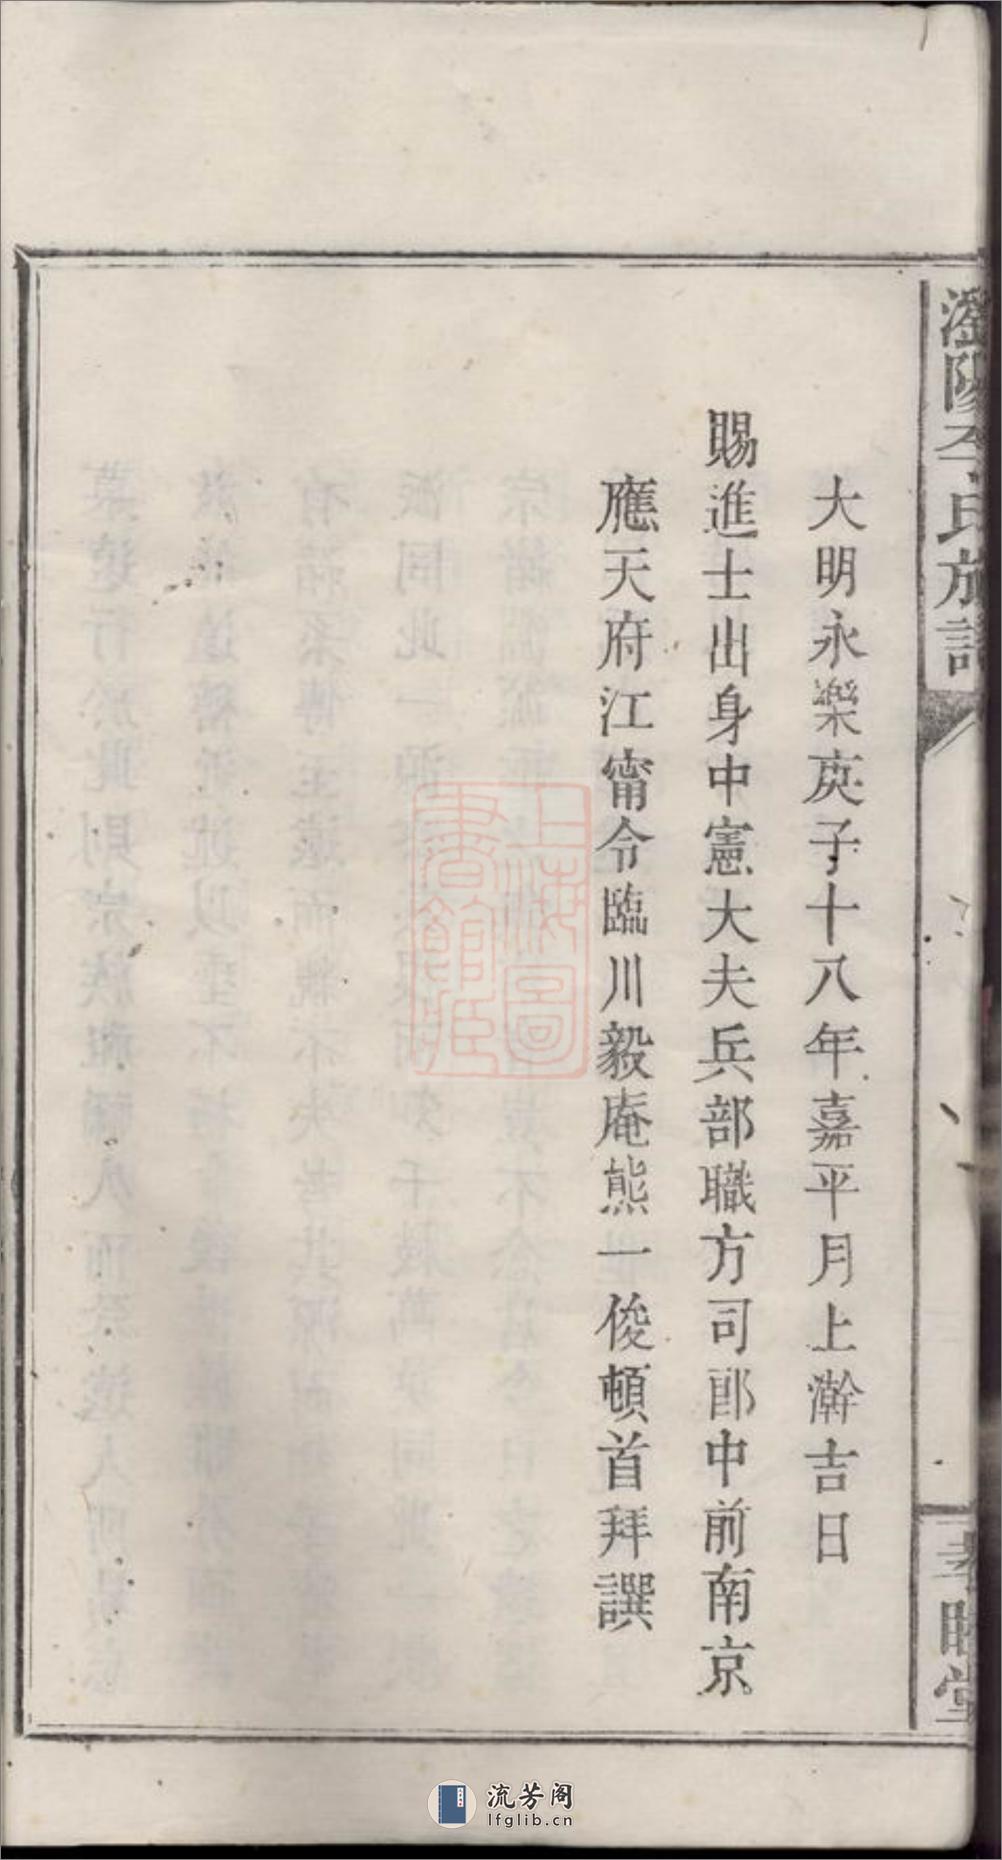 大明永樂庚子十八年嘉平月上澣吉日
賜進士出身中憲大夫兵部職方司郎中前南京
應天府江甯令臨川毅庵熊一俊頓首拜譔
陽李氏族譜
孝睦堂
上海圖書館藏
流芳阁
lfglib.cn